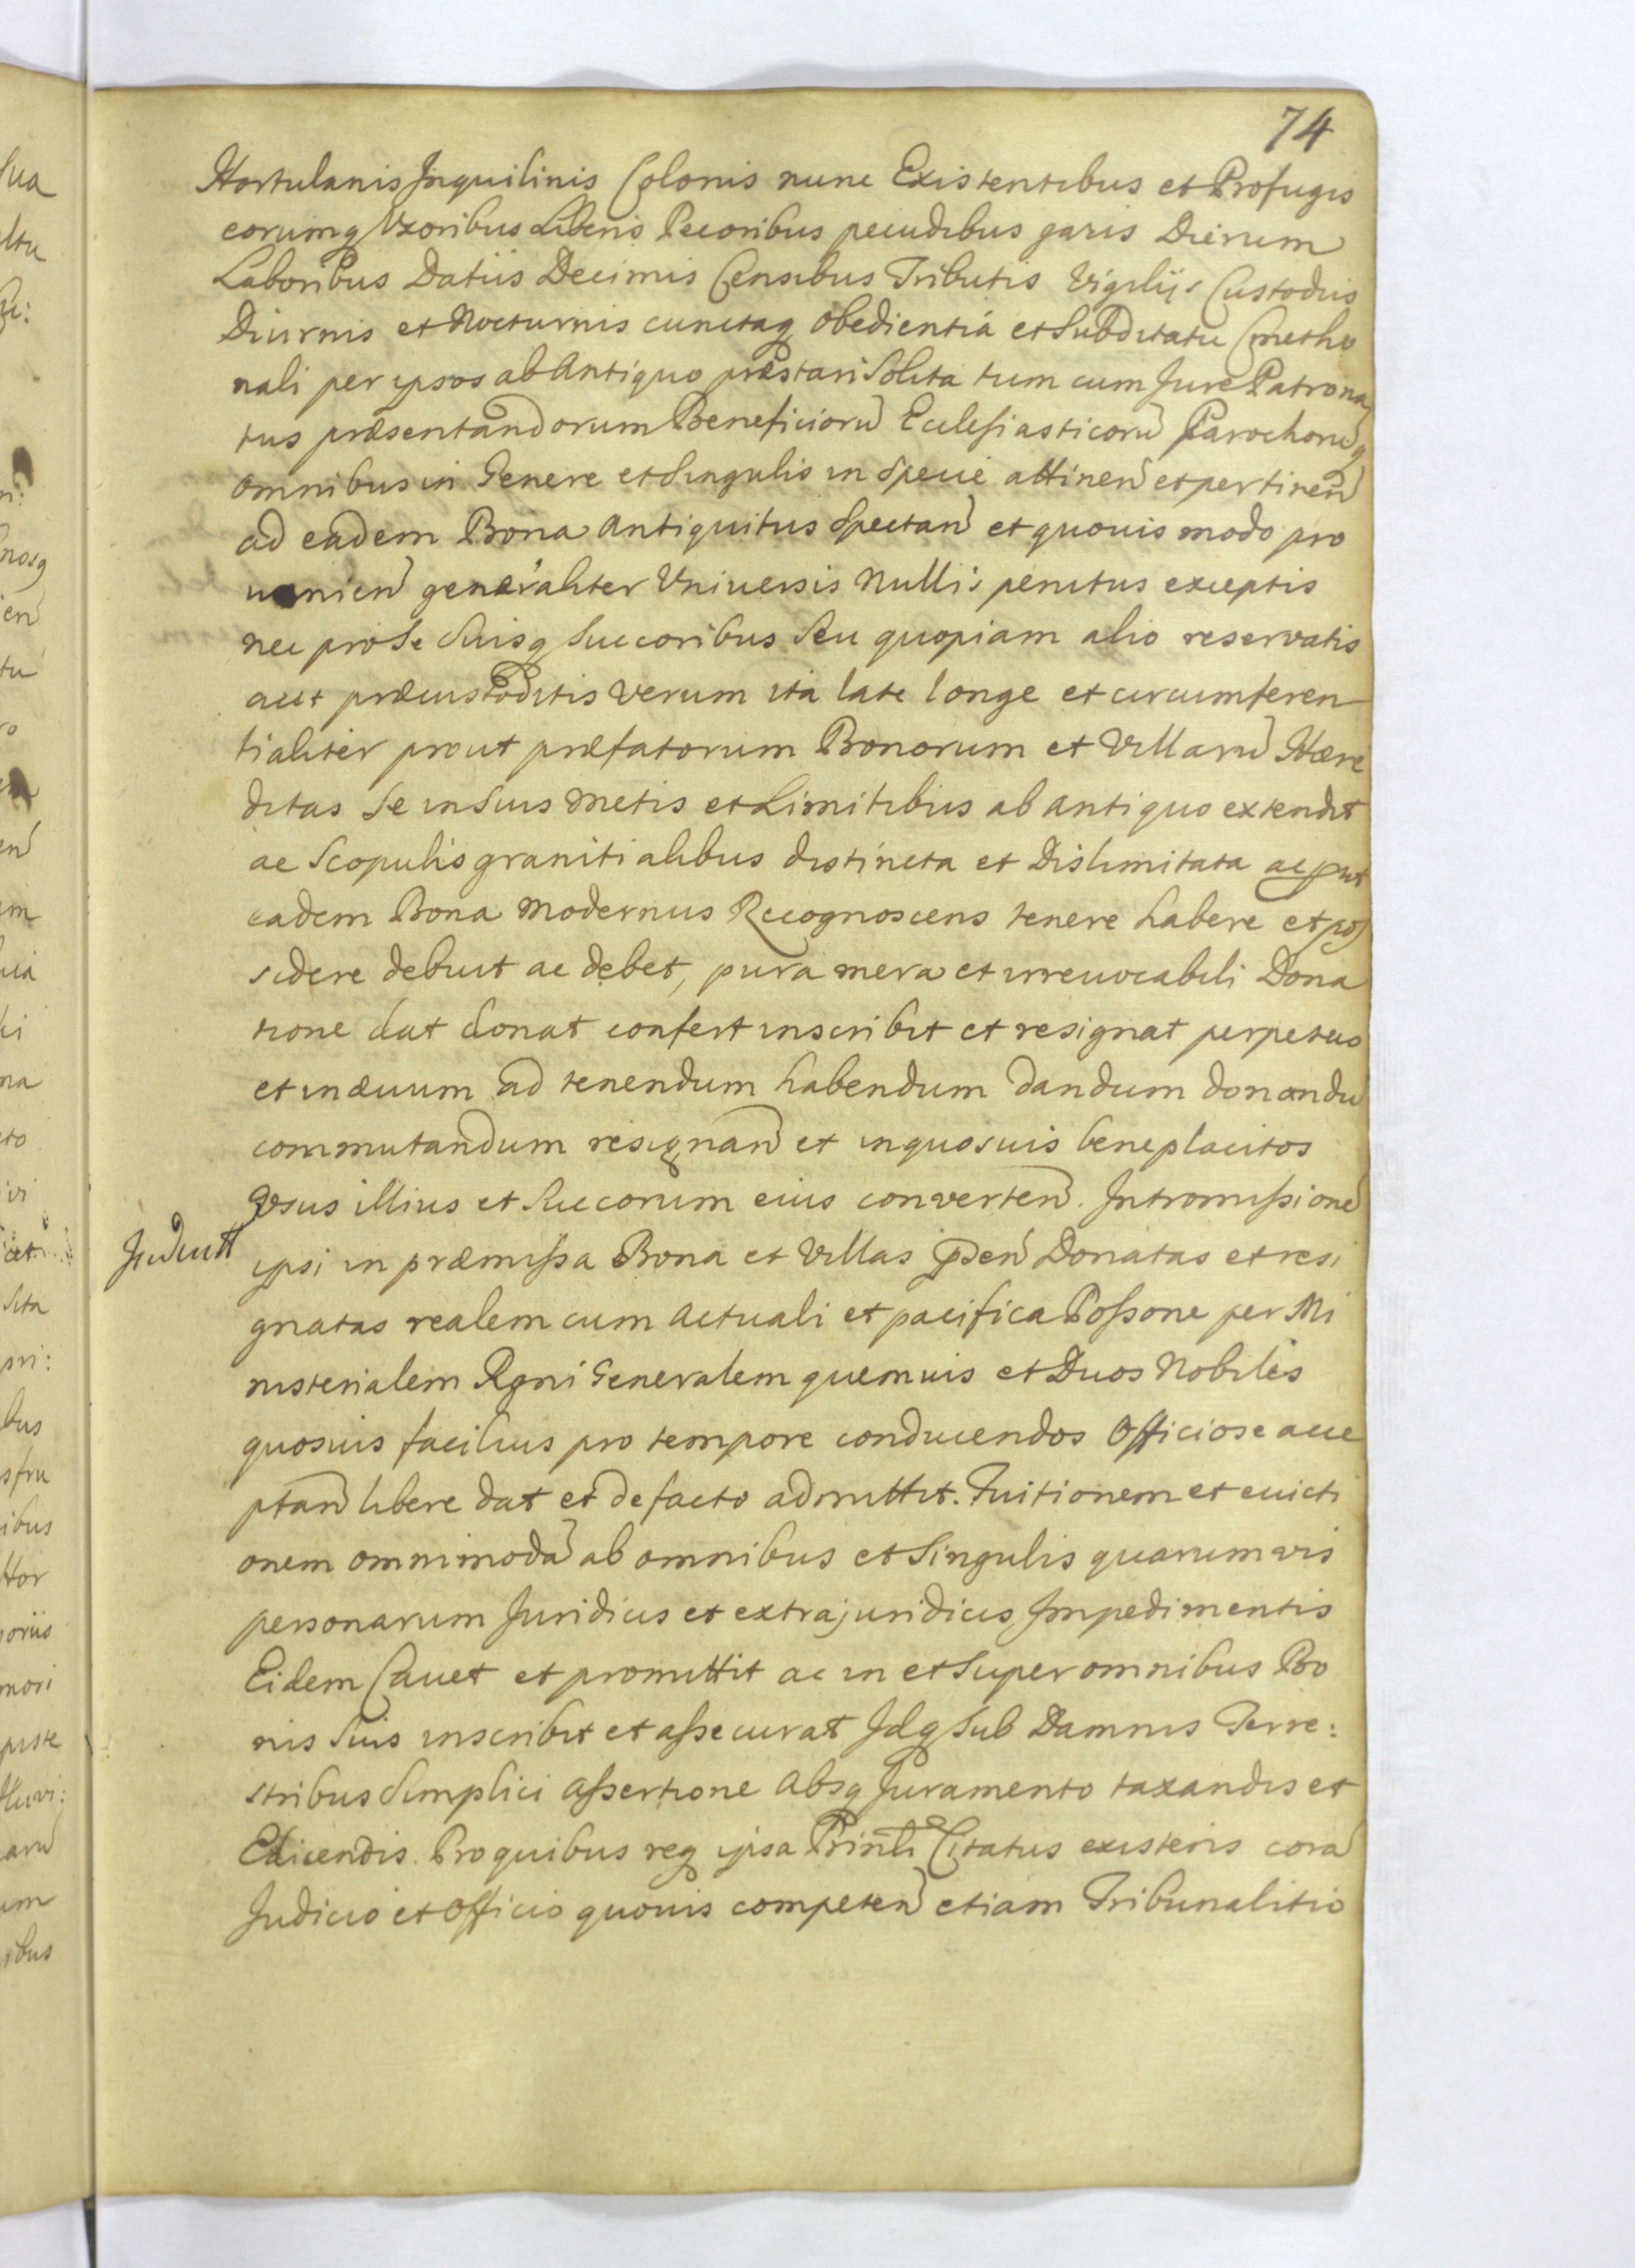 74
Hortulanis Inquilinis Colonis nunc Existentibus et Profugis
eorumq Uxoribus Liberis Pecoribus pecudibus garis Dierum
Laboribus Datiis Decimis Censibus Tributis Vigilijs Custodiis
Diurnis et Nocturnis cunctaq obedientiá et Subditatu Cmetho
nali per ipsos ab Antiquo præstari Solita tum cum Jure Patrona
tus præsentandorum Beneficiorũ Ecclesiasticorũ Parochorũq
omnibus in Genere et Singulis in Specie attineñ et pertineñ
ad eadem Bona Antiquitus Spectañ et quouis modo pro
uenieñ generaliter Vniuersis Nullis penitus exceptis
nec pro Se Suisq Succoribus Seu quopiam alio reservatis
aut præcustoditis verum ita late longe et circumferen
tialiter prout præfatorum Bonorum et Villarũ Hære
ditas Se in Suis Metis et Limitibus ab antiquo extendit
ac Scopulis granitialibus distincta et Dislimitata ac put
eadem Bona Modernus Recognoscens tenere habere et pos
sidere debuit ac debet, pura mera et irreuocabili Dona
tione dat donat confert inscribit et resignat perpetuo
et in æuum ad tenendum habendum dandum donandũ
commutandum resignañ et in quosuis beneplacitos
Vsus illius et Succorum eius converteñ. Intromissionẽ
ipsi in præmissa Bona et Villas pñseñ Donatas et resi
gnatas realem cum Actuali et pacifica Possone per Mi
nisterialem Rgni Generalem quemuis et Duos Nobiles
quosuis facilius pro tempore conducendos Officiose acce
ptañ libere dat et de facto admittit. Tuitionem et euicti
onem omnimodã ab omnibus et Singulis quarumvis
personarum Juridicis et extrajuridicis Impedimentis
Eidem Cauet et promittit ac in et Super omnibus Bo
nis Suis inscribit et assecurat Idq Sub Damnis Terre:
stribus Simplici Assertione Absq Juramento taxandis et
Edicendis. Pro quibus req ipsa Prinli Citatus existens corã
Judicio et Officio quouis competeñ etiam Tribunalitio